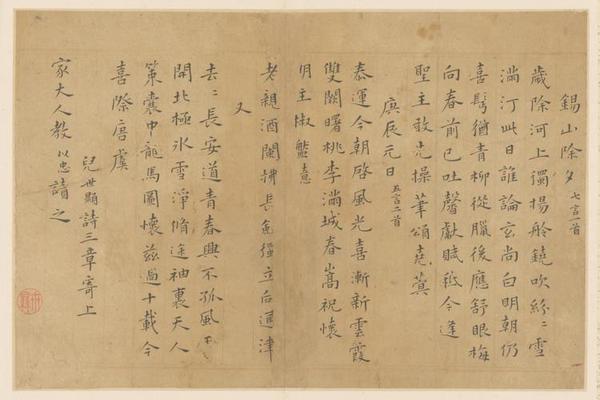 錫山除夕 七言一首
歲除河上獨揚舲鐃吹紛〻雪
滿汀此日誰論玄尚白明朝仍
喜髩猶青柳從臘後應舒眼梅
向春前已吐馨獻賦祗今逢
聖主敢先操筆頌堯蓂
庚辰元日 五言二首
泰運今朝啓風光喜漸新雲霞
雙闕曙桃李滿城春嵩祝懷
明主椒觴憶
老親酒闌拂長劍獨立后通津
又
去〻長安道青春興不孤風
開北極氷雪淨脩途袖裏天人
策囊中龍馬圖懷茲過十載今
喜際唐虞
兒世顯詩三章寄上
家大人教 以忠請之